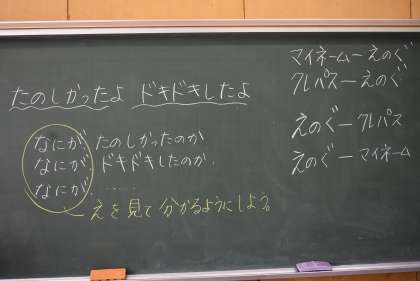 たのしかったよ ドキドキしたよ
なにが たのしかったのか
なにが ドキドキしたのか.
なにが .....
えを見て分かるようにしよう。
マイネームーえのぐ
クレパスーえのぐ
えのぐークレパス
えのぐーマイネーム